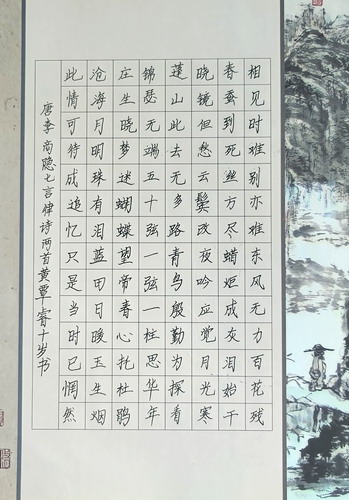 相见时难别亦难东风无力百花残
春蚕到死丝方尽蜡炬成灰泪始干
晓镜但愁云鬓改夜吟应觉月光寒
蓬山此去无多路青鸟殷勤为探看
锦瑟无端五十弦一弦一柱思华年
庄生晓梦迷蝴蝶望帝春心托杜鹃
沧海月明珠有泪蓝田日暖玉生烟
此情可待成追忆只是当时已惘然
唐李商隐七言律诗两首黄覃睿十岁书